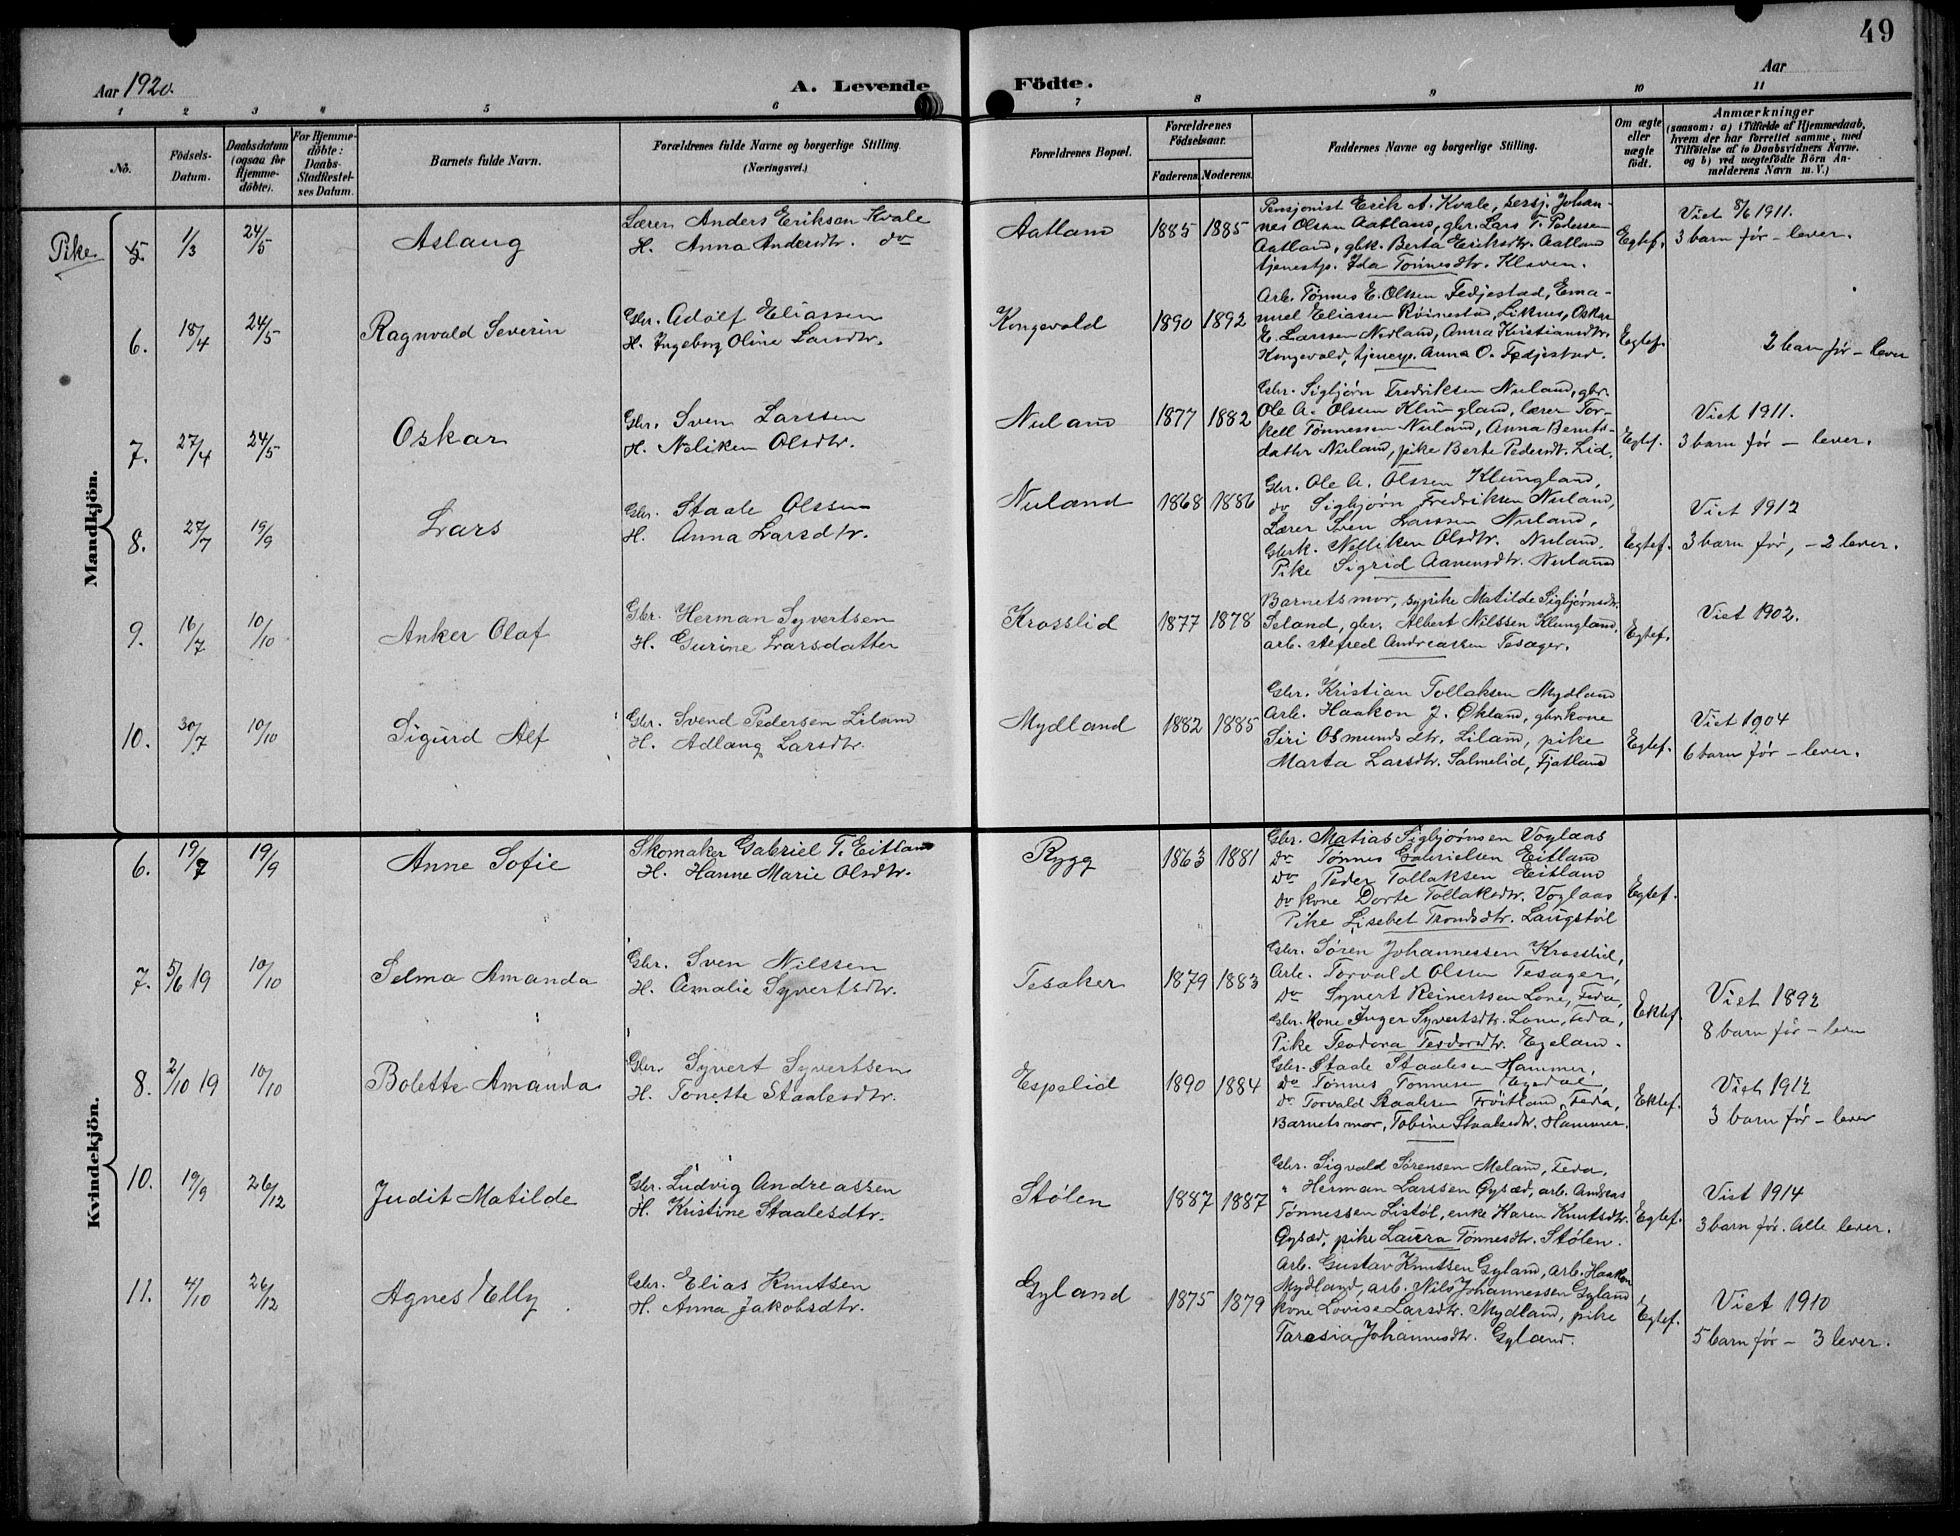 49
Aar 1920.
A. Levende Födte.
Aar
1 2 3 4 5 6 7 8 9 10 11
No.
Födsels-Datum.
Daabsdatum (ogsaa for Hjemme-döbte).
For Hjemme-döbte: Daabs-Stadfæstel-ses Datum.
Barnets fulde Navn.
Forældrenes fulde Navne og borgerlige Stilling.
(Næringsvei.)
Forældrenes Bopæl.
Forældrenes Födselsaar.
Faderens. Moderens.
Faddernes Navne og borgerlige Stilling.
Om ægte eller uægte födt.
Anmærkninger
(saasom: a) i Tilfælde af Hjemmedaab, hvem der har forrettet samme, med Tilföielse af to Daabsvidners Navne, og b) ved uægtefödte Börn An-melderens Navn m. V.)
Mandkjön.
Pike 5 1/3 24/5 Aslaug
Lærer Anders Eriksen Kvale
H. Anna Andersdtr. do
Aatland 1885 1885
Pensjonist Erik A. Kvale, sersj. Johan-
nes Olsen Aatland, gbr. Lars T. Pedersen
Aatland, gbk. Berta Eriksdtr. Aatland
tjenestp. Ida Tønnesdtr. Kleven.
Egtef.
Viet 8/6 1911.
3 barn før – lever.
6. 18/4 24/5 Ragnvald Severin
Gbr. Adolf Eliassen
H. Ingeborg Oline Larsdtr.
Kongevold 1890 1892
Arb. Tønnes E. Olsen Fedjestad, Ema-
nuel Eliassen Røinestad, Liknes, Oskar
E. Larssen Nedland, Anna Kristiansdtr.
Kongevald, tjenep. Anna O. Fedjestad.
Egtef.
2 barn før – lever
7. 27/4 24/5 Oskar
Gbr. Sven Larssen
H. Neliken Olsdtr.
Nuland 1877 1882
Gbr. Sigbjørn Fredriksen Nuland, gbr.
Ole A. Olssen Klungland, lærer Tor-
kell Tønnessen Nuland, Anna Bernts-
datter Nuland, pike Berte Pedersdtr. Lid.
Egtef.
Viet 1911.
3 barn før – lever.
8. 27/7 19/9 Lars
Gbr. Staale Olssen
H. Anna Larsdtr.
Nuland 1868 1886
Gbr. Ole A. Olssen Klungland,
do Sigbjørn Fredriksen Nuland,
Lærer Sven Larssen Nuland,
Gbrk. Nelliken Olsdtr. Nuland.
Pike Sigrid Aanensdtr. Nuland
Egtef.
Viet 1912
3 barn før, – 2 lever.
9. 16/7 10/10 Anker Olaf
Gbr. Herman Syvertsen
H. Gurine Larsdatter
Krosslid 1877 1878
Barnets mor, sypike Matilde Sigbjørnsdtr.
Seland, gbr. Albert Nilssen Klungland,
arb. Alfred Andreassen Tesager.
Egtef.
Viet 1902.
10. 30/7 10/10 Sigurd Alf
Gbr. Svend Pedersen Liland
H. Adlaug Larsdtr.
Mydland 1882 1885
Gbr. Kristian Tollaksen Mydland
Arb. Haakon J. Økland, gbrkone
Siri Osmundsdtr. Liland, pike
Marta Larsdtr. Salmelid, Fjatland
Egtef.
Viet 1904
6 barn før – lever.
Kvindekjön.
6. 19/7 19/9 Anne Sofie
Skomaker Gabriel T. Eitland
H. Hanne Marie Olsdtr.
Rygg 1863 1881
Gbr. Matias Sigbjørnsen Voglaas
do Tønnes Gabrielsen Eitland
do Peder Tollaksen Eitland
do kone Dorte Tollaksdtr. Voglaas
Pike Lisebet Trondsdtr. Laugstøl
Egtef.
7. 5/6 19 10/10 Selma Amanda
Gbr. Sven Nilssen
H. Amalie Syvertsdtr.
Tesaker 1879 1883
Gbr. Søren Johannessen Krosslid,
Arb. Torvald Olsen Tesager,
do Syvert Reinertsen Lone, Feda,
Gbr. kone Inger Syvertsdtr. Lone, Feda,
Pike Teodora Teodorsdtr. Egeland.
Ektef.
Viet 1892
8 barn før – lever
8. 2/10 19 10/10 Bolette Amanda
Gbr. Syvert Syvertsen
H. Tonette Staalesdtr.
Espelid 1890 1884
Gbr. Staale Staalesen Hammer,
do Tønnes Tønnesen Egedal,
do Torvald Staalesen Frøitland, Feda,
Barnets mor, Tobine Staalesdtr. Hammer.
Ektef.
Viet 1912
3 barn før – lever
10. 19/9 26/12 Judit Matilde
Gbr. Ludvig Andreassen
H. Kristine Staalesdtr.
Stølen 1887 1887
Gbr. Sigvald Sørensen Meland, Feda,
" Herman Larssen Øysæd, arb. Andreas
Tønnessen Listøl, enke Karen Knutsdtr.
Øysæd, pike Laura Tønnesdtr. Stølen.
Egtef.
Viet 1914
3 barn før. Alle lever.
11. 4/10 26/12 Agnes Elly
Gbr. Elias Knutsen
H. Anna Jakobsdtr.
Gyland 1875 1879
Arb. Gustav Knutsen Gyland, arb. Haakon
Mydland, arb. Nils Johannessen Gyland
kone Lovise Larsdtr. Mydland, pike
Taresia Johannesdtr. Gyland.
Egtef.
Viet 1910
5 barn før – 3 lever.